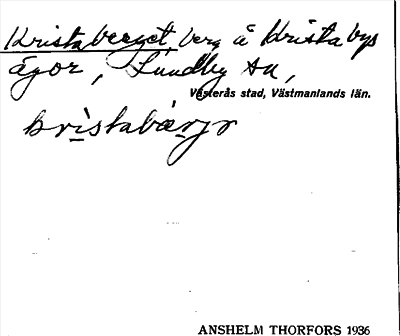 Kristaberget, berg å Krista bys
ägor, Lundby sn,
Västerås stad, Västmanlands län.
kristabærjr
ANSHELM THORFORS 1936